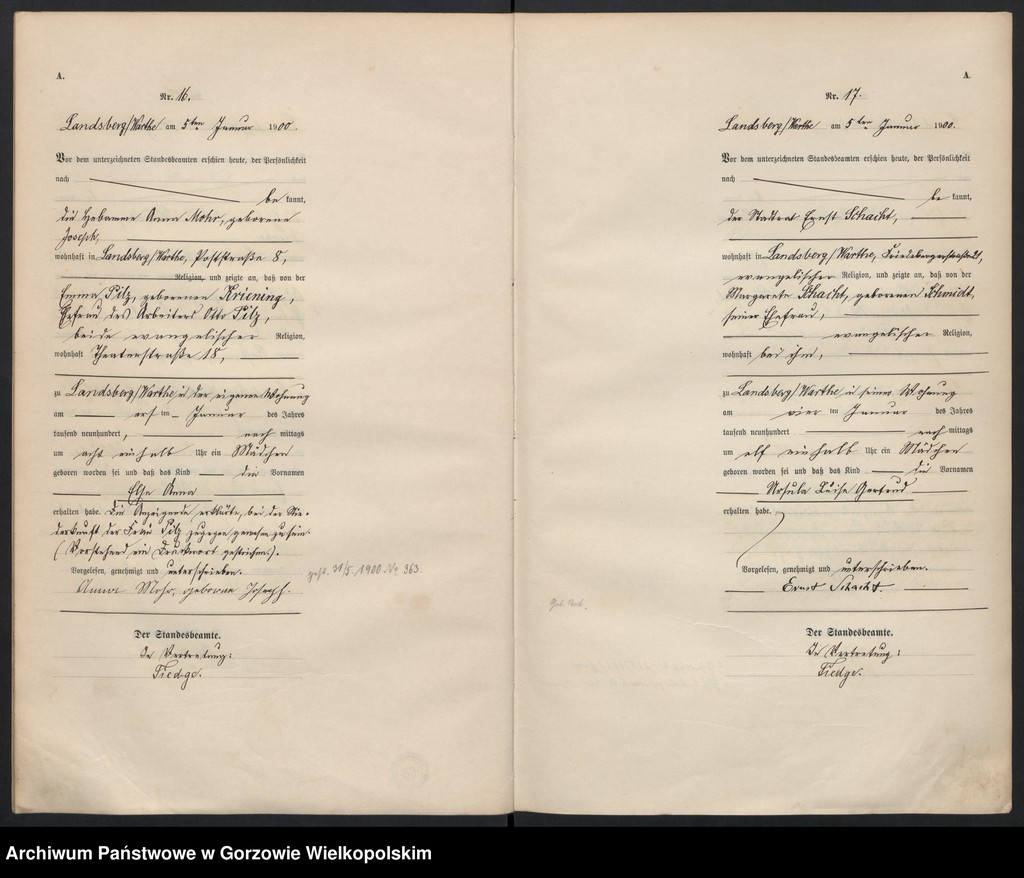 A.
Nr. 16.
Landsberg/Warthe am 5ten Januar 1900.
Vor dem unterzeichneten Standesbeamten erschien heute, der Persönlichkeit
nach
be kannt,
die Hebamme Anna Mohr, geborene
Joseph,
wohnhaft in Landsberg/Warthe, Poststraße 8,
Religion, und zeigte an, daß von der
Emma Pilz, geborenen Kriening,
Ehefrau des Arbeiters Otto Pilz,
beide evangelischer Religion,
wohnhaft Theaterstraße 18,
zu Landsberg/Warthe, in der eigenen Wohnung
am ersten Januar des Jahres
tausend neunhundert, nach mittags
um acht einhalb Uhr ein Mädchen
geboren worden sei und daß das Kind die Vornamen
Else Anna
erhalten habe. Die Anzeigende erklärte, bei der Nie-
derkunft der Frau Pilz zugegen gewesen zu sein.
(Vorstehend ein Druckwort gestrichen).
Vorgelesen, genehmigt und unterschrieben.
Anna Mohr, geborene Joseph.
gest. 31/5. 1900. Nr. 363.
Der Standesbeamte.
In Vertretung:
Tiedge.
A
Nr. 17.
Landsberg/Warthe am 5ten Januar 1900.
Vor dem unterzeichneten Standesbeamten erschien heute, der Persönlichkeit
nach
be kannt,
der Stadtrat Ernst Schacht,
wohnhaft in Landsberg/Warthe,
evangelischer Religion, und zeigte an, daß von der
Margarete Schacht, geborenen Schmidt,
seiner Ehefrau,
evangelischer Religion,
wohnhaft bei ihm,
zu Landsberg/Warthe, in seiner Wohnung
am vier ten Januar des Jahres
tausend neunhundert nach mittags
um elf einhalb Uhr ein Mädchen
geboren worden sei und daß das Kind die Vornamen
Ursula Luise Gertrud
erhalten habe.
Vorgelesen, genehmigt und unterschrieben.
Ernst Schacht.
Der Standesbeamte.
In Vertretung:
Tiedge.
Archiwum Państwowe w Gorzowie Wielkopolskim